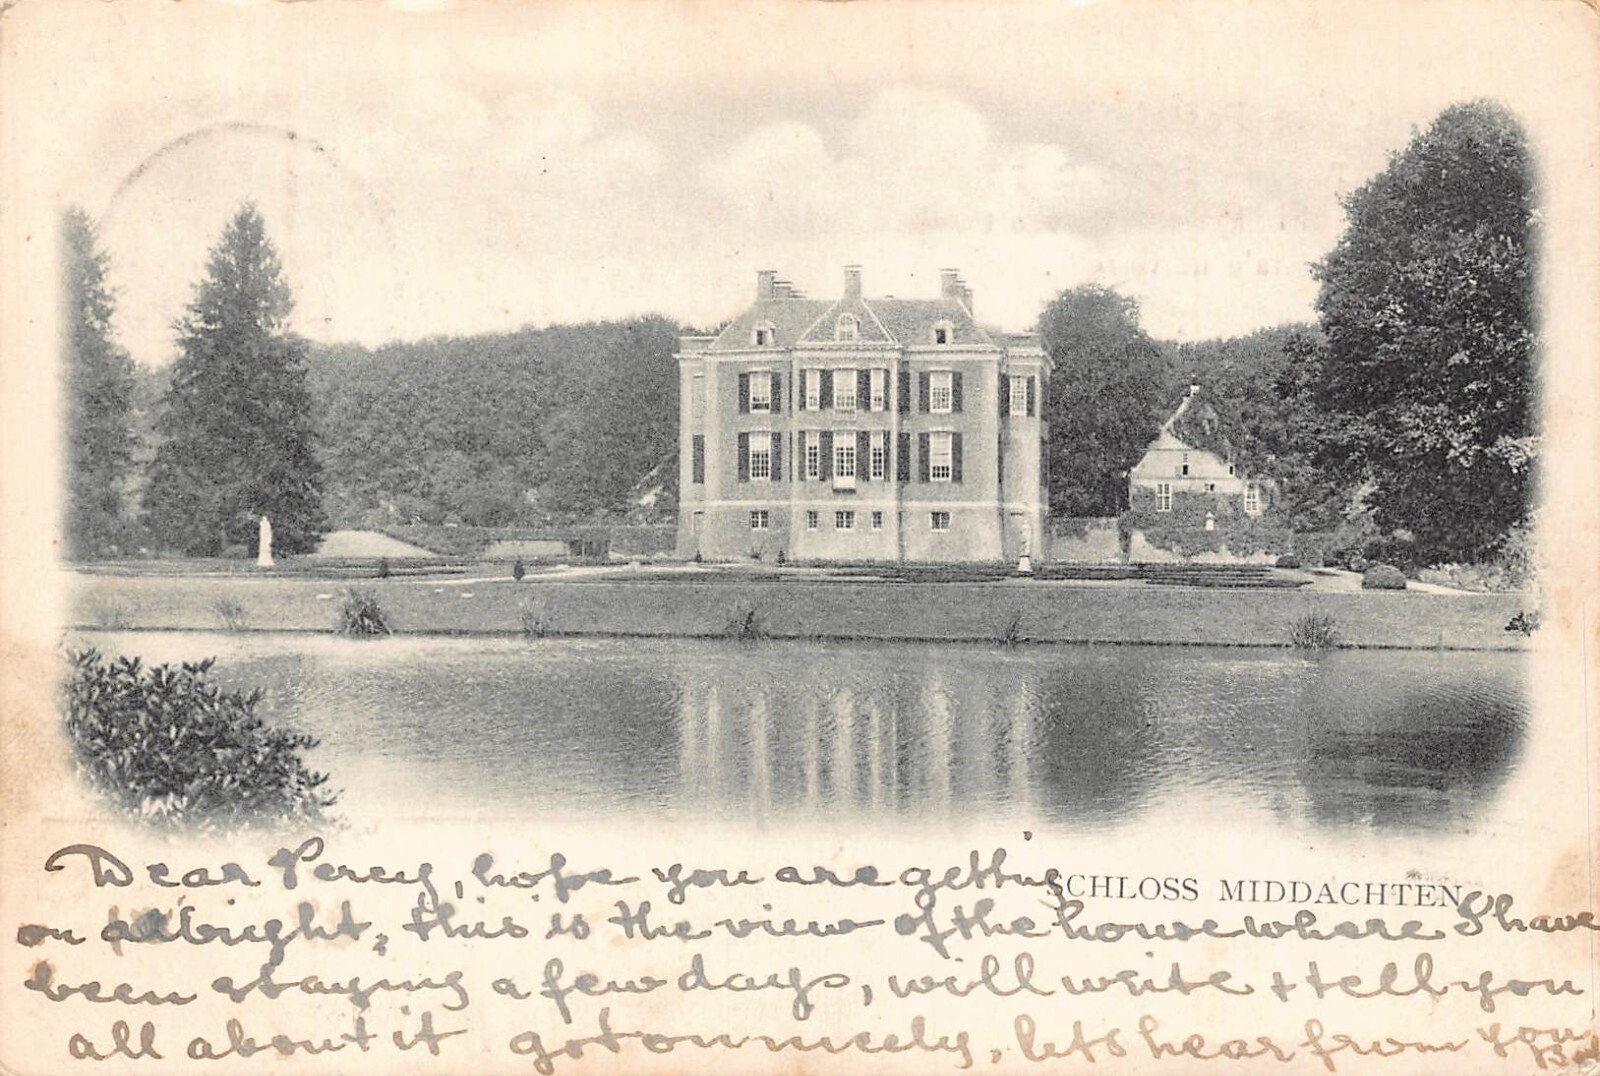 SCHLOSS MIDDACHTEN
Dear Percy, hope you are getting
on allbright, this is the view of the house where I have
been staying a few days, will write + tell you
all about it got on nicely, lets hear from you